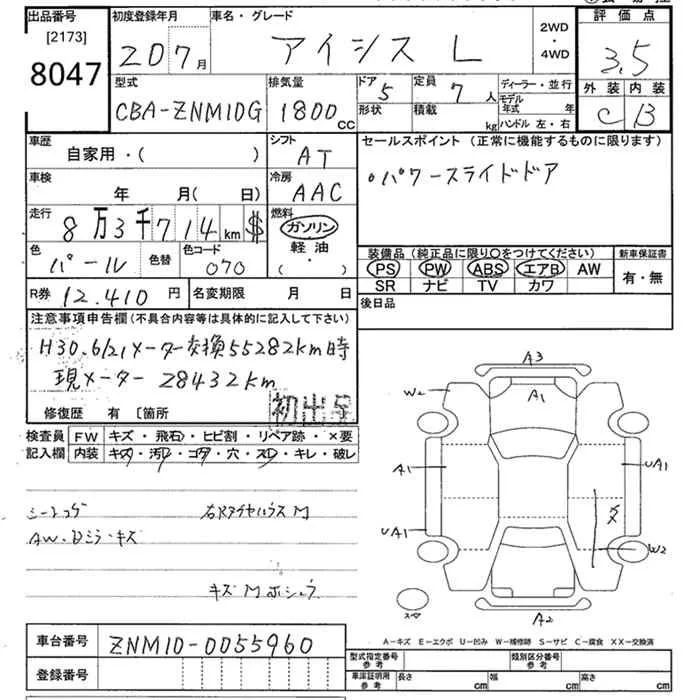 出品番号
[2173]
8047
初度登録年月
20 7月
車名・グレード
アイシス L
2WD
・
4WD
評価点
3.5
外装 内装
C B
型式
CBA-ZNM10G
排気量
1800cc
ドア
5
定員
7人
形状
積載
kg
ディーラー・並行
モデル
年式 年
ハンドル 左・右
車歴
自家用・( )
シフト
AT
セールスポイント (正常に機能するものに限ります)
・パワースライドドア
車検
年 月( 日)
冷房
AAC
走行
8万3千714km $
燃料
ガソリン
軽油
( ・ )
色
パール
色替
色コード
070
装備品 (純正品に限り○をつけてください)
PS PW ABS エアB AW
SR ナビ TV カワ
新車保証書
有・無
R券 12.410円
名変期限 月 日
後日品
注意事項申告欄(不具合内容等は具体的に記入して下さい)
H30.6/21メーター交換55282km時
現メーター 28432km
修復歴 有 〔箇所
初出品
検査員
記入欄
FW キズ・飛石・ヒビ割・リペア跡・×要
内装 キズ・汚レ・コゲ・穴・スレ・キレ・破レ
シートコゲ
右Rタイヤハウス M
AW・Dミラ・キズ
キズ M ホシュウ
A3
W2
A1
A1
UA1
UA1
W2
A2
スペ
A-キズ E-エクボ U-凹み W-補修跡 S-サビ C-腐食 XX-交換済
車台番号
ZNM10-0055960
登録番号
型式指定番号
参考
類別区分番号
参考
車庫証明用
参考
長さ cm
幅 cm
高さ cm